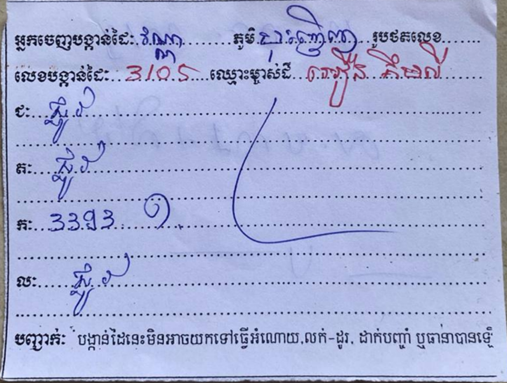 អ្នកចេញបង្កាន់ដៃ: វណ្ណា ភូមិ រូបថតលេខ
លេខបង្កាន់ដៃ: 3105 ឈ្មោះម្ចាស់ដី គឹមលី
ជ: ផ្លូវ
ត: ផ្លូវ
ក: 3393
ល: ផ្លូវ
បញ្ជាក់: បង្កាន់ដៃនេះមិនអាចយកទៅធ្វើអំណោយ,លក់-ដូរ, ដាក់បញ្ចាំ ឬធានាបានទ្បើ